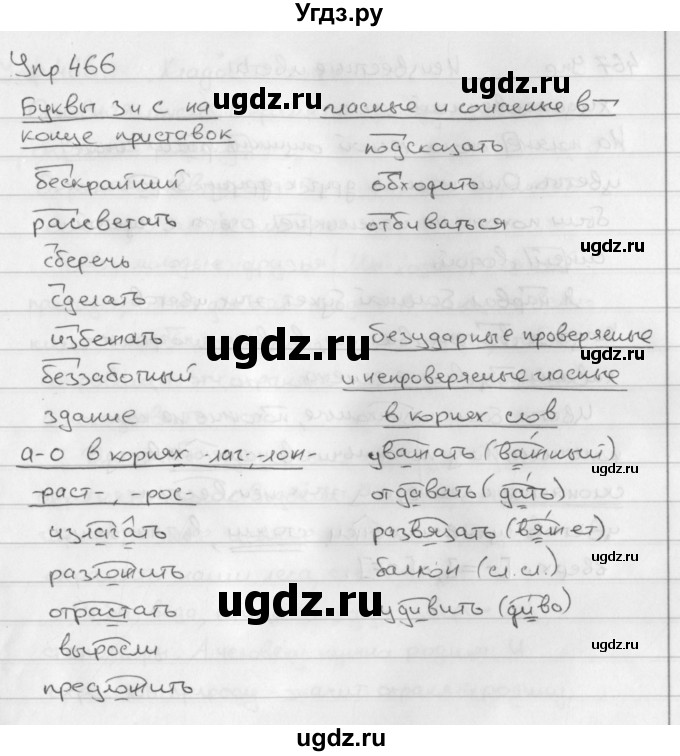 Угдз.ру
Упр. 466
Буквы з и с на
конце приставок
бескрайний
рассветать
сберечь
сделать
избежать
беззаботный
здание
а-о в корнях -лаг-, -лож-
-раст-, -рос-
излагать
разложить
отрастать
выросли
предложить
гласные и согласные в ¬
подсказать
обходить
отбиваться
безударные проверяемые
и непроверяемые гласные
в корнях слов
уважать (важный)
отдавать (дать)
развязать (вяжет)
балкон (сл.сл.)
удивить (диво)
ugdz.ru
ugdz.ru
ugdz.ru
ugdz.ru
ugdz.ru
ugdz.ru
ugdz.ru
ugdz.ru
ugdz.ru
ugdz.ru
ugdz.ru